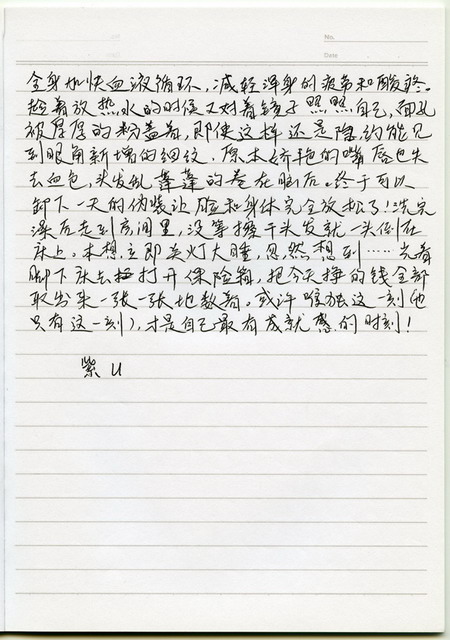 No.
Date
全身加快血液循环，减轻浑身的疲劳和酸疼。
趁着放热水的时候又对着镜子照照自己，面孔
被厚厚的粉盖着，即使这样还是隐约能见
到眼角新增的细纹，原本娇艳的嘴唇也失
去血色，头发乱蓬蓬的卷在脑后。终于可以
卸下一天的伪装让脸和身体完全放松了！洗完
澡后走到房间里，没等擦干头发就一头倒在
床上。本想立即关灯大睡，忽然想到……光着
脚下床去打开保险箱，把今天挣的钱全部
取出来一张一张地数着。或许唯独这一刻（也
只有这一刻），才是自己最有成就感的时刻！
紫 U